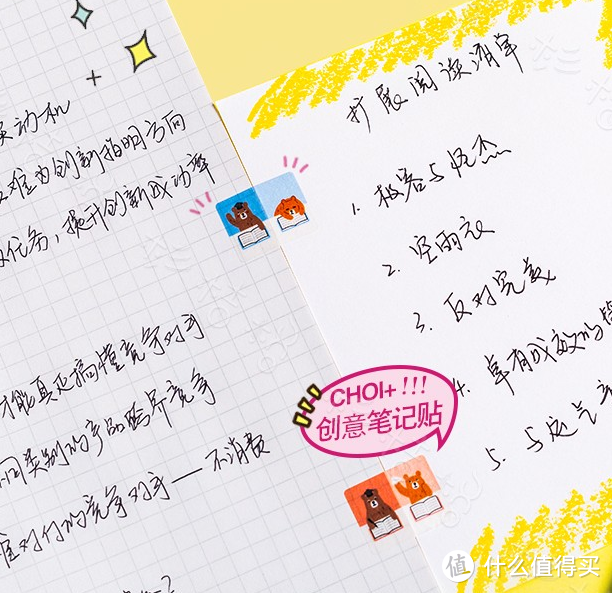 动机
难为创新指明方向
任务，提升创新成功率
才能真正搞懂竞争对手
不同类别的产品跨界竞争
谁对付的竞争对手——不消费
扩展阅读清单
1. 极客与怪杰
2. 穿雨衣
3. 反对完美
4. 卓有成效的管
5. 与运气
CHOI+ !!!
创意笔记贴
值 什么值得买